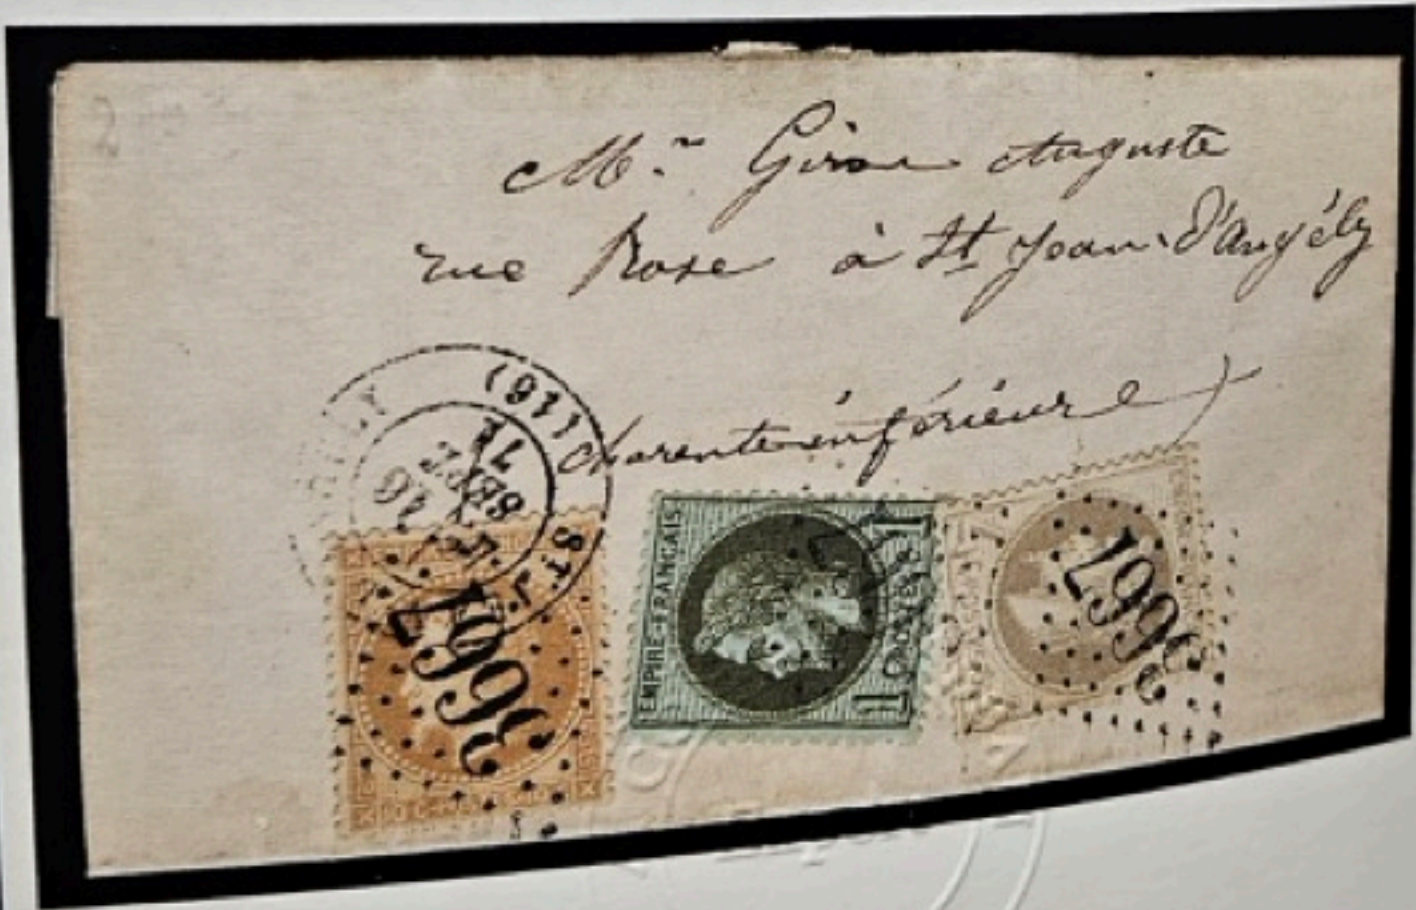 Mr Girau Auguste
rue Rose à St Jean-d'Angély
Charente inférieure)
(116)
16
SEPT
71
ST J
3667
EMPIRE FRANCAIS
1 POSTES 1
3667